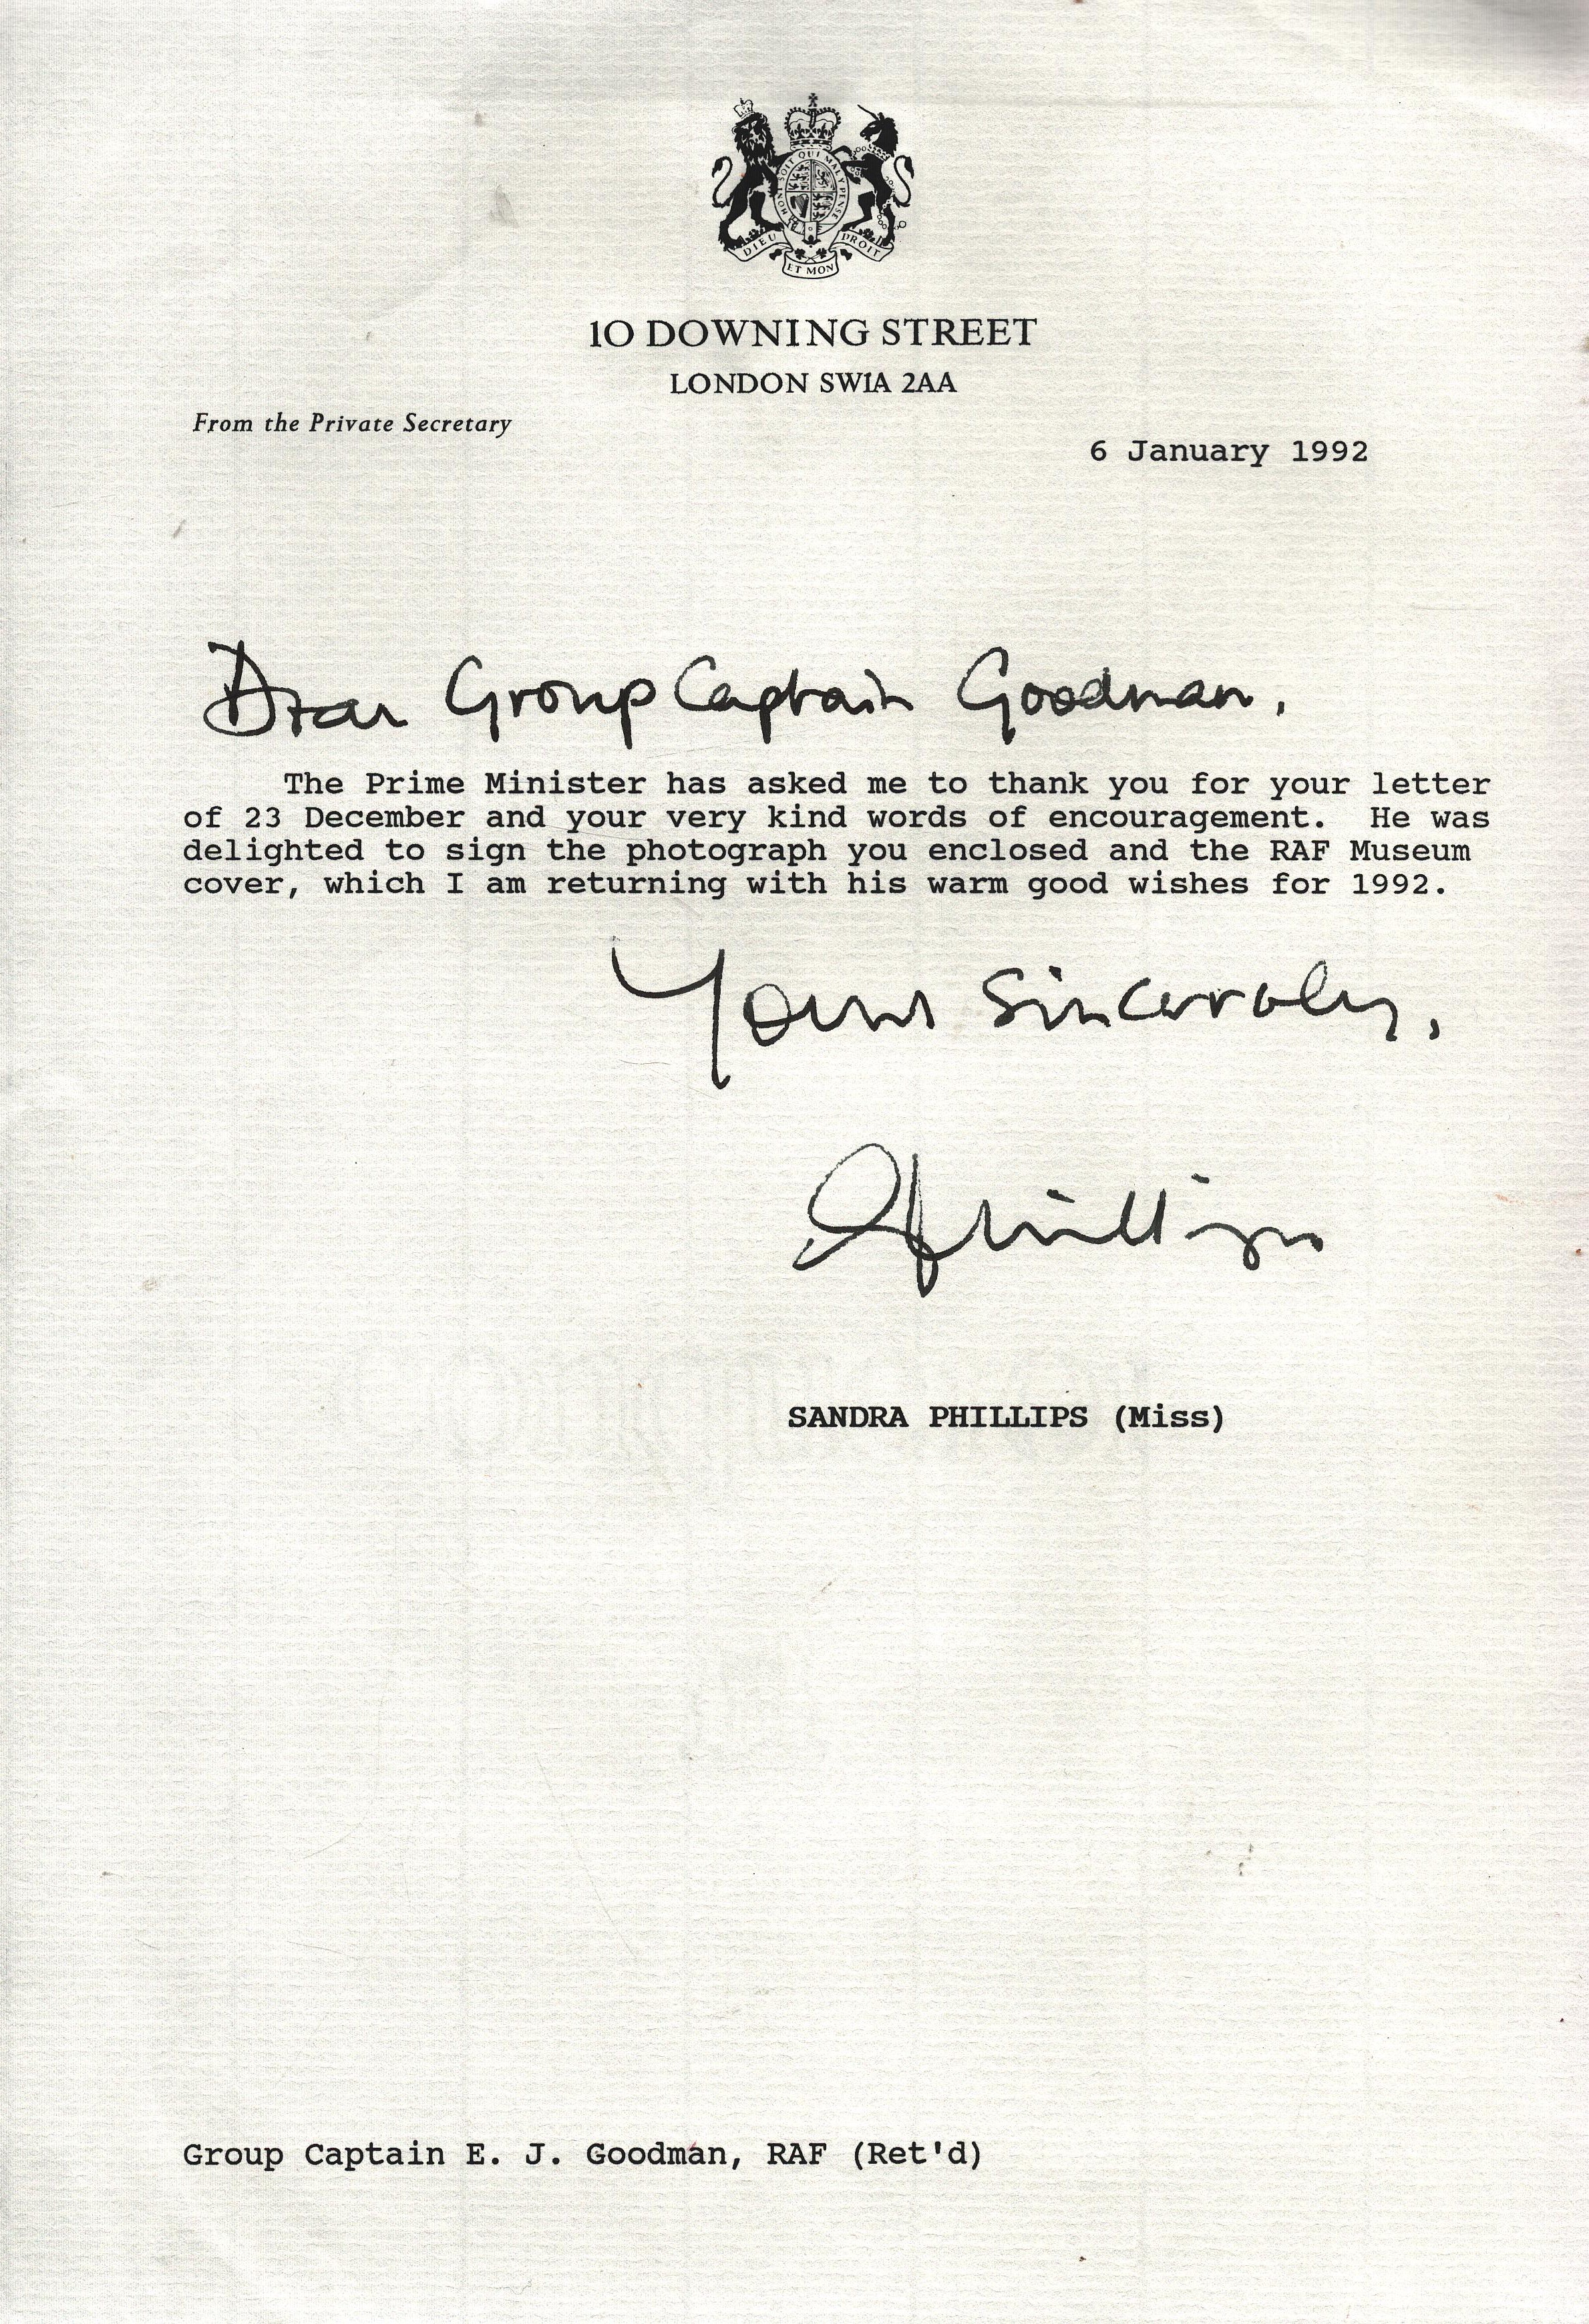 HONI SOIT QUI MAL Y PENSE
DIEU ET MON DROIT
10 DOWNING STREET
LONDON SW1A 2AA
From the Private Secretary
6 January 1992
Dear Group Captain Goodman,
The Prime Minister has asked me to thank you for your letter
of 23 December and your very kind words of encouragement. He was
delighted to sign the photograph you enclosed and the RAF Museum
cover, which I am returning with his warm good wishes for 1992.
Yours sincerely,
SPhillips
SANDRA PHILLIPS (Miss)
Group Captain E. J. Goodman, RAF (Ret'd)